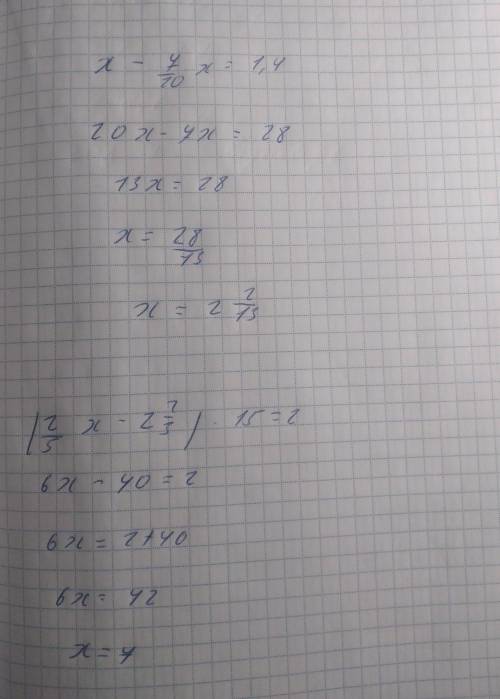 x - 7/20 x = 1,4
20x - 7x = 28
13x = 28
x = 28/13
x = 2 2/13
(2/5 x - 2 2/3) · 15 = 2
6x - 40 = 2
6x = 2+40
6x = 42
x = 7